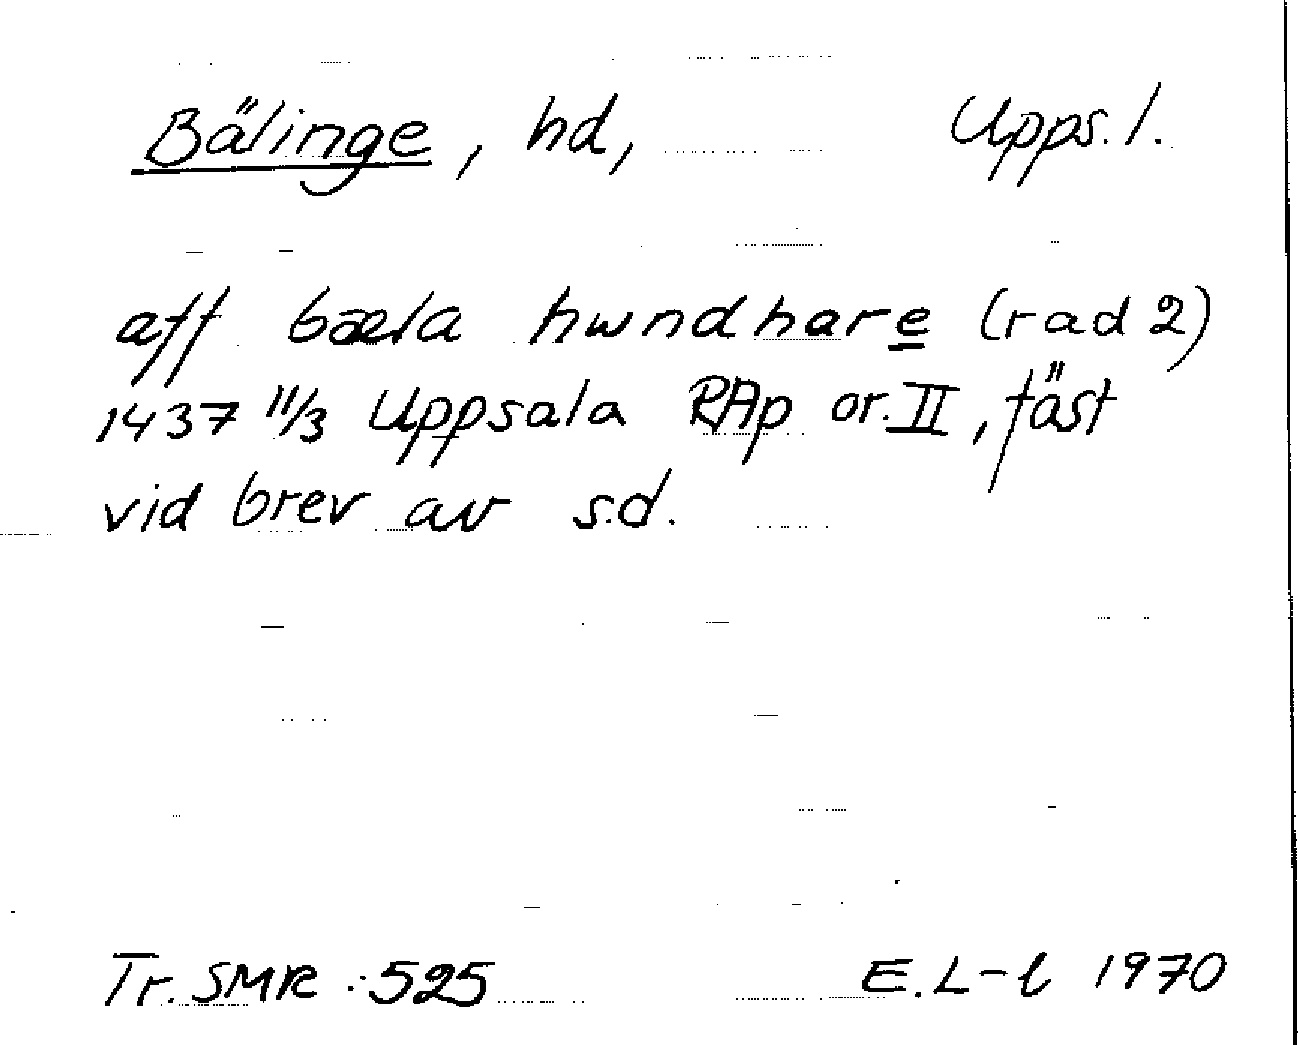 Bälinge, hd, Upps. l.
aff bæla hwndhare (rad 2)
1437 11/3 Uppsala RAp or. II, fäst
vid brev av s.d.
Tr. SMR :525 E.L-l 1970